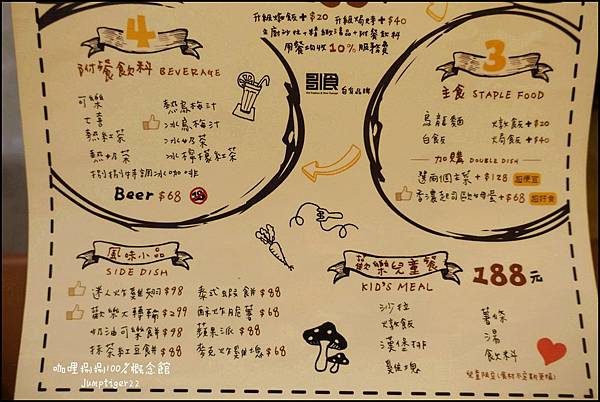 升級燉飯+$20 升級焗烤+$40
主廚沙拉+精緻湯品+附餐飲料
用餐均收10%服務費
4
附餐飲料 BEVERAGE
可樂
七喜
熱紅茶
熱奶茶
熱烏梅汁
冰烏梅汁
冰奶茶
冰檸檬紅茶
捌捌特調冰咖啡
Beer $68
18
自有品牌
3
主食 STAPLE FOOD
烏龍麵 燉飯+$20
白飯 焗飯+$40
加購 DOUBLE DISH
選兩個主菜+$128 超便宜
香濃起司歐姆蛋+$68 超好食
風味小品
SIDE DISH
迷人炸雞翅$98
歡樂大轉輪$299
奶油可樂餅$98
抹茶紅豆餅$88
泰式蝦餅$88
酥炸脆薯$68
蘋果派$88
麥克炸雞塊$68
歡樂兒童餐 188元
KID'S MEAL
沙拉
燉飯
漢堡排
雞塊
薯條
湯
飲料
兒童限定(食材不定期更換)
咖哩捌捌100名概念館
Jumptiger22